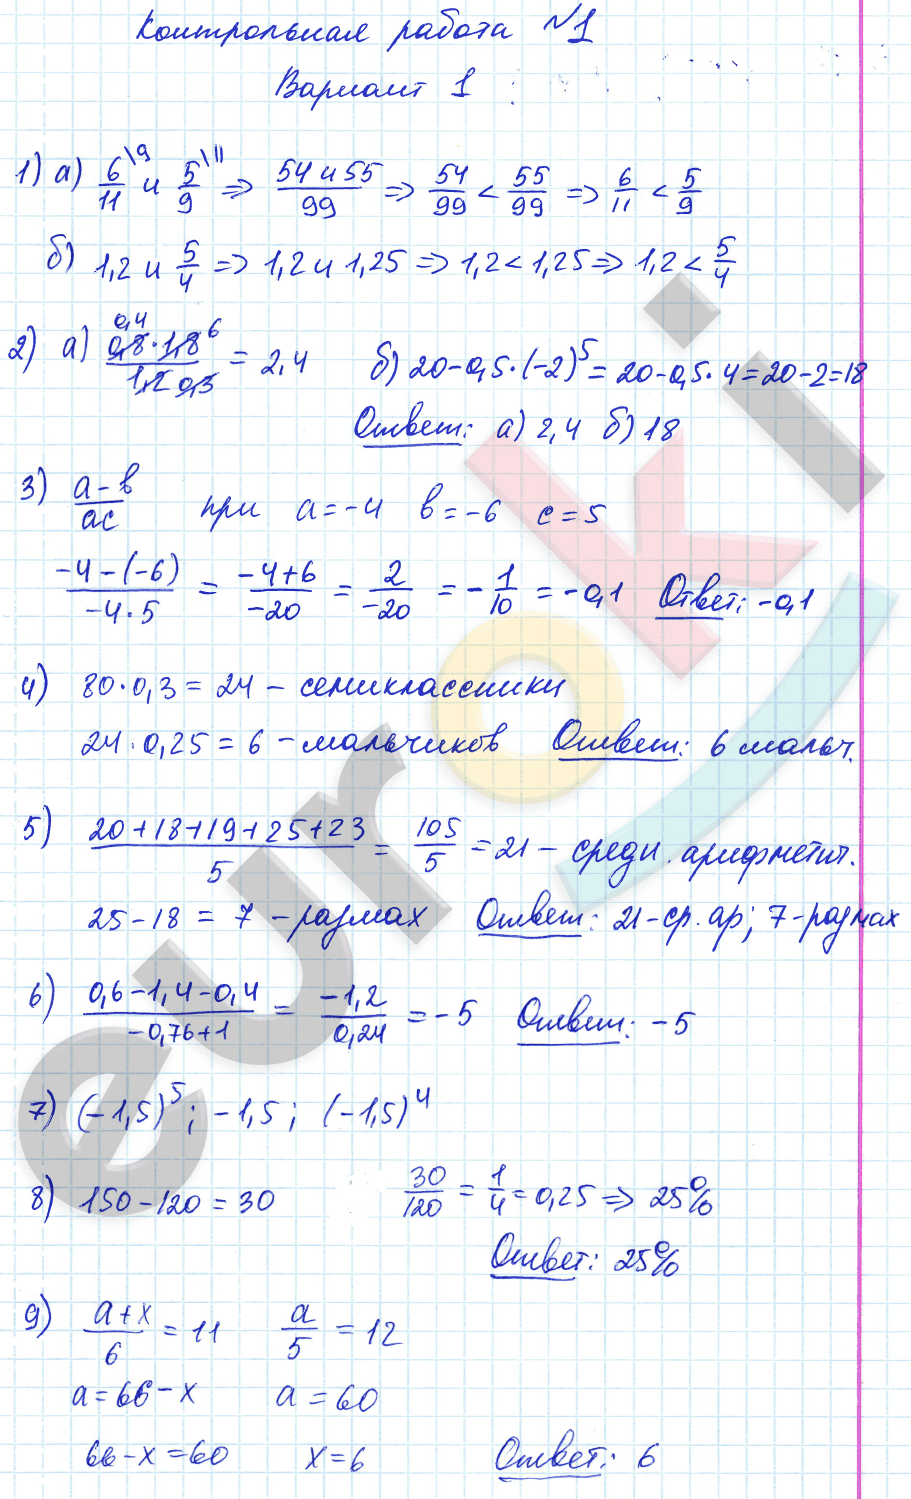 Контрольная работа №1
Вариант 1
1) а) 6/11 \9 и 5/9 \11 => 54 и 55/99 => 54/99 < 55/99 => 6/11 < 5/9
б) 1,2 и 5/4 => 1,2 и 1,25 => 1,2 < 1,25 => 1,2 < 5/4
2) а) 0,4 0,8 · 1,8 6 / 1,2 0,3 = 2,4 б) 20 - 0,5 · (-2)^5 = 20 - 0,5 · 4 = 20 - 2 = 18
Ответ: а) 2,4 б) 18
3) a - b / ac при a = -4 b = -6 c = 5
-4 - (-6) / -4 · 5 = -4 + 6 / -20 = 2 / -20 = - 1/10 = -0,1 Ответ: -0,1
4) 80 · 0,3 = 24 - семиклассники
24 · 0,25 = 6 - мальчиков Ответ: 6 мальч.
5) 20 + 18 + 19 + 25 + 23 / 5 = 105/5 = 21 - средн. арифметич.
25 - 18 = 7 - размах Ответ: 21 - ср. ар; 7 - размах
6) 0,6 - 1,4 - 0,4 / -0,76 + 1 = -1,2 / 0,24 = -5 Ответ: -5
7) (-1,5)^5; -1,5; (-1,5)^4
8) 150 - 120 = 30 30/120 = 1/4 = 0,25 => 25%
Ответ: 25%
9) a + x / 6 = 11 a/5 = 12
a = 66 - x a = 60
66 - x = 60 x = 6 Ответ: 6
euroki